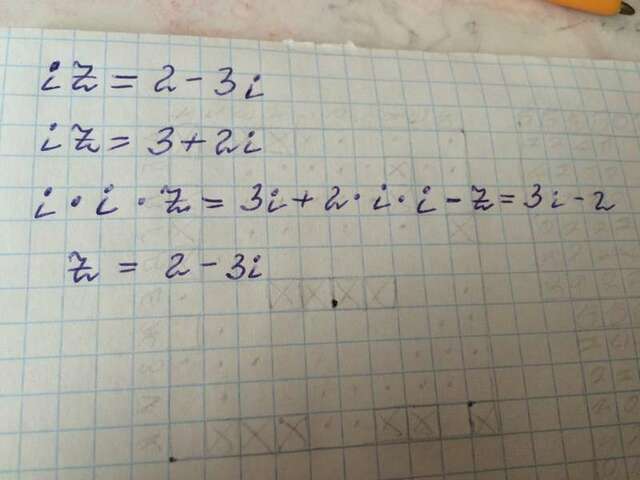 iz = 2 - 3i
iz = 3 + 2i
i · i · z = 3i + 2 · i · i - z = 3i - 2
z = 2 - 3i